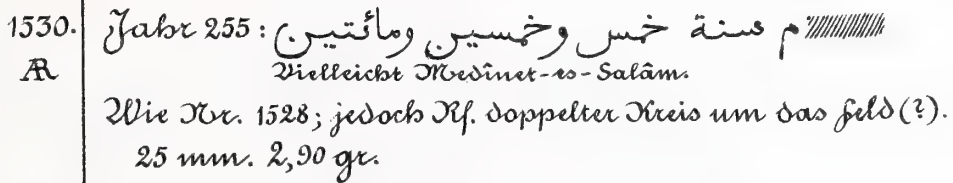 1530. Jahr 255: م سنة خمس وخمسين ومائتين
AR Vielleicht Medînet-es-Salâm.
Wie Nr. 1528; jedoch Rf. doppelter Kreis um das Feld (?).
25 mm. 2,90 gr.